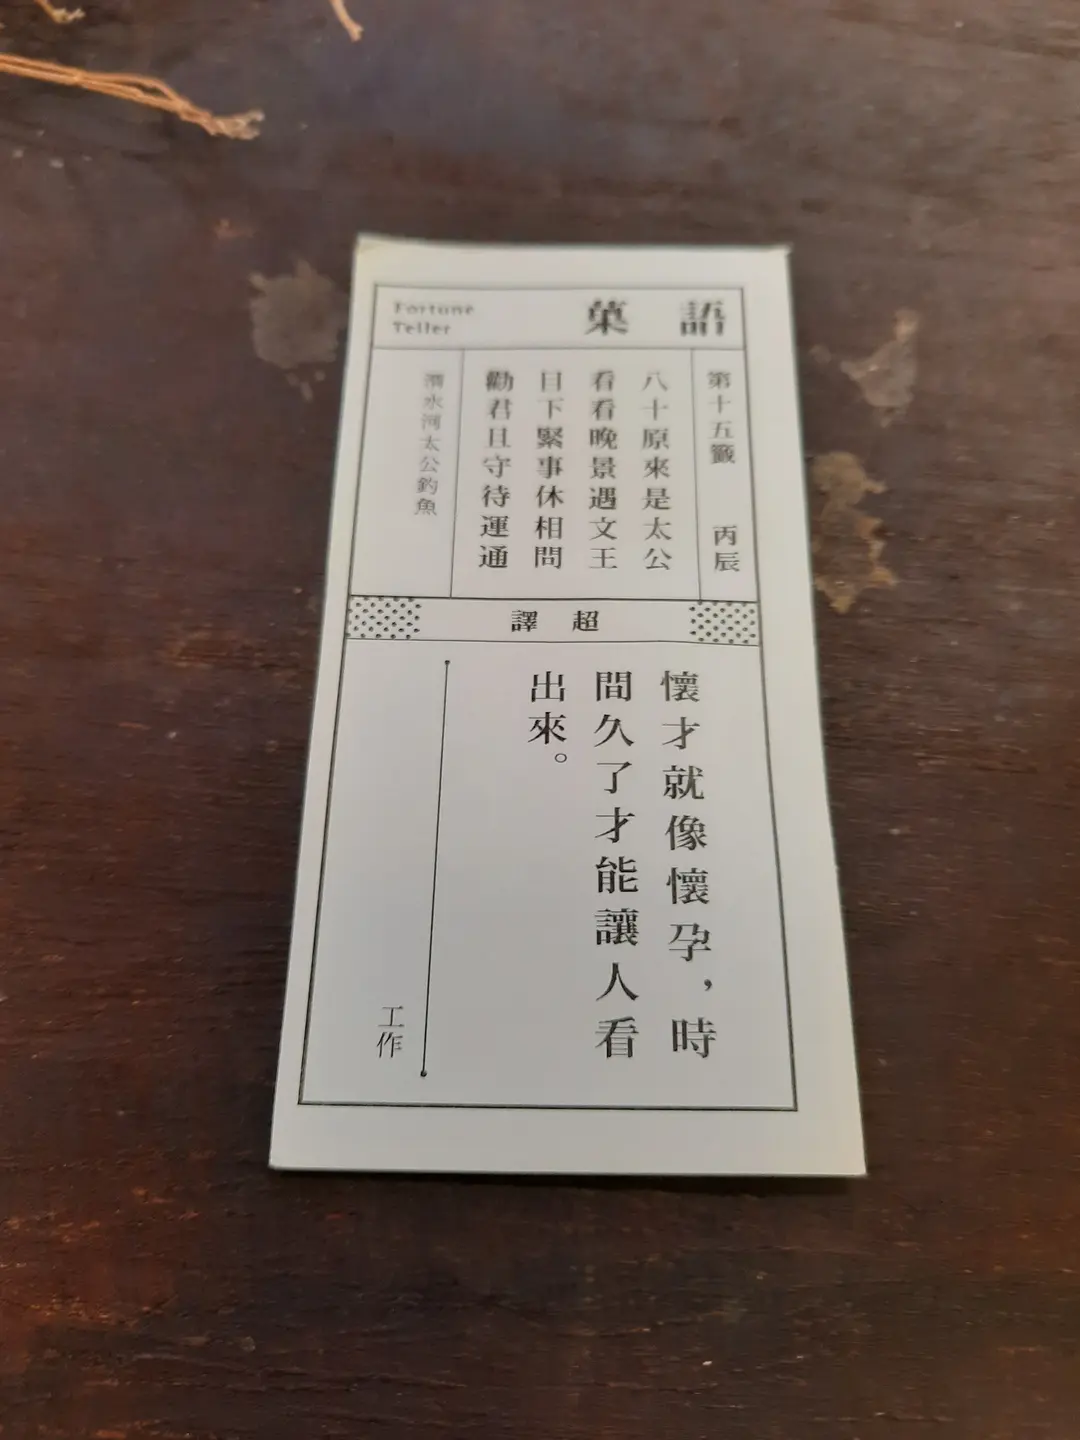 Fortune
Teller
語菓
第十五籤 丙辰
八十原來是太公
看看晚景遇文王
目下緊事休相問
勸君且守待運通
渭水河太公釣魚
超譯
懷才就像懷孕，時
間久了才能讓人看
出來。
工作